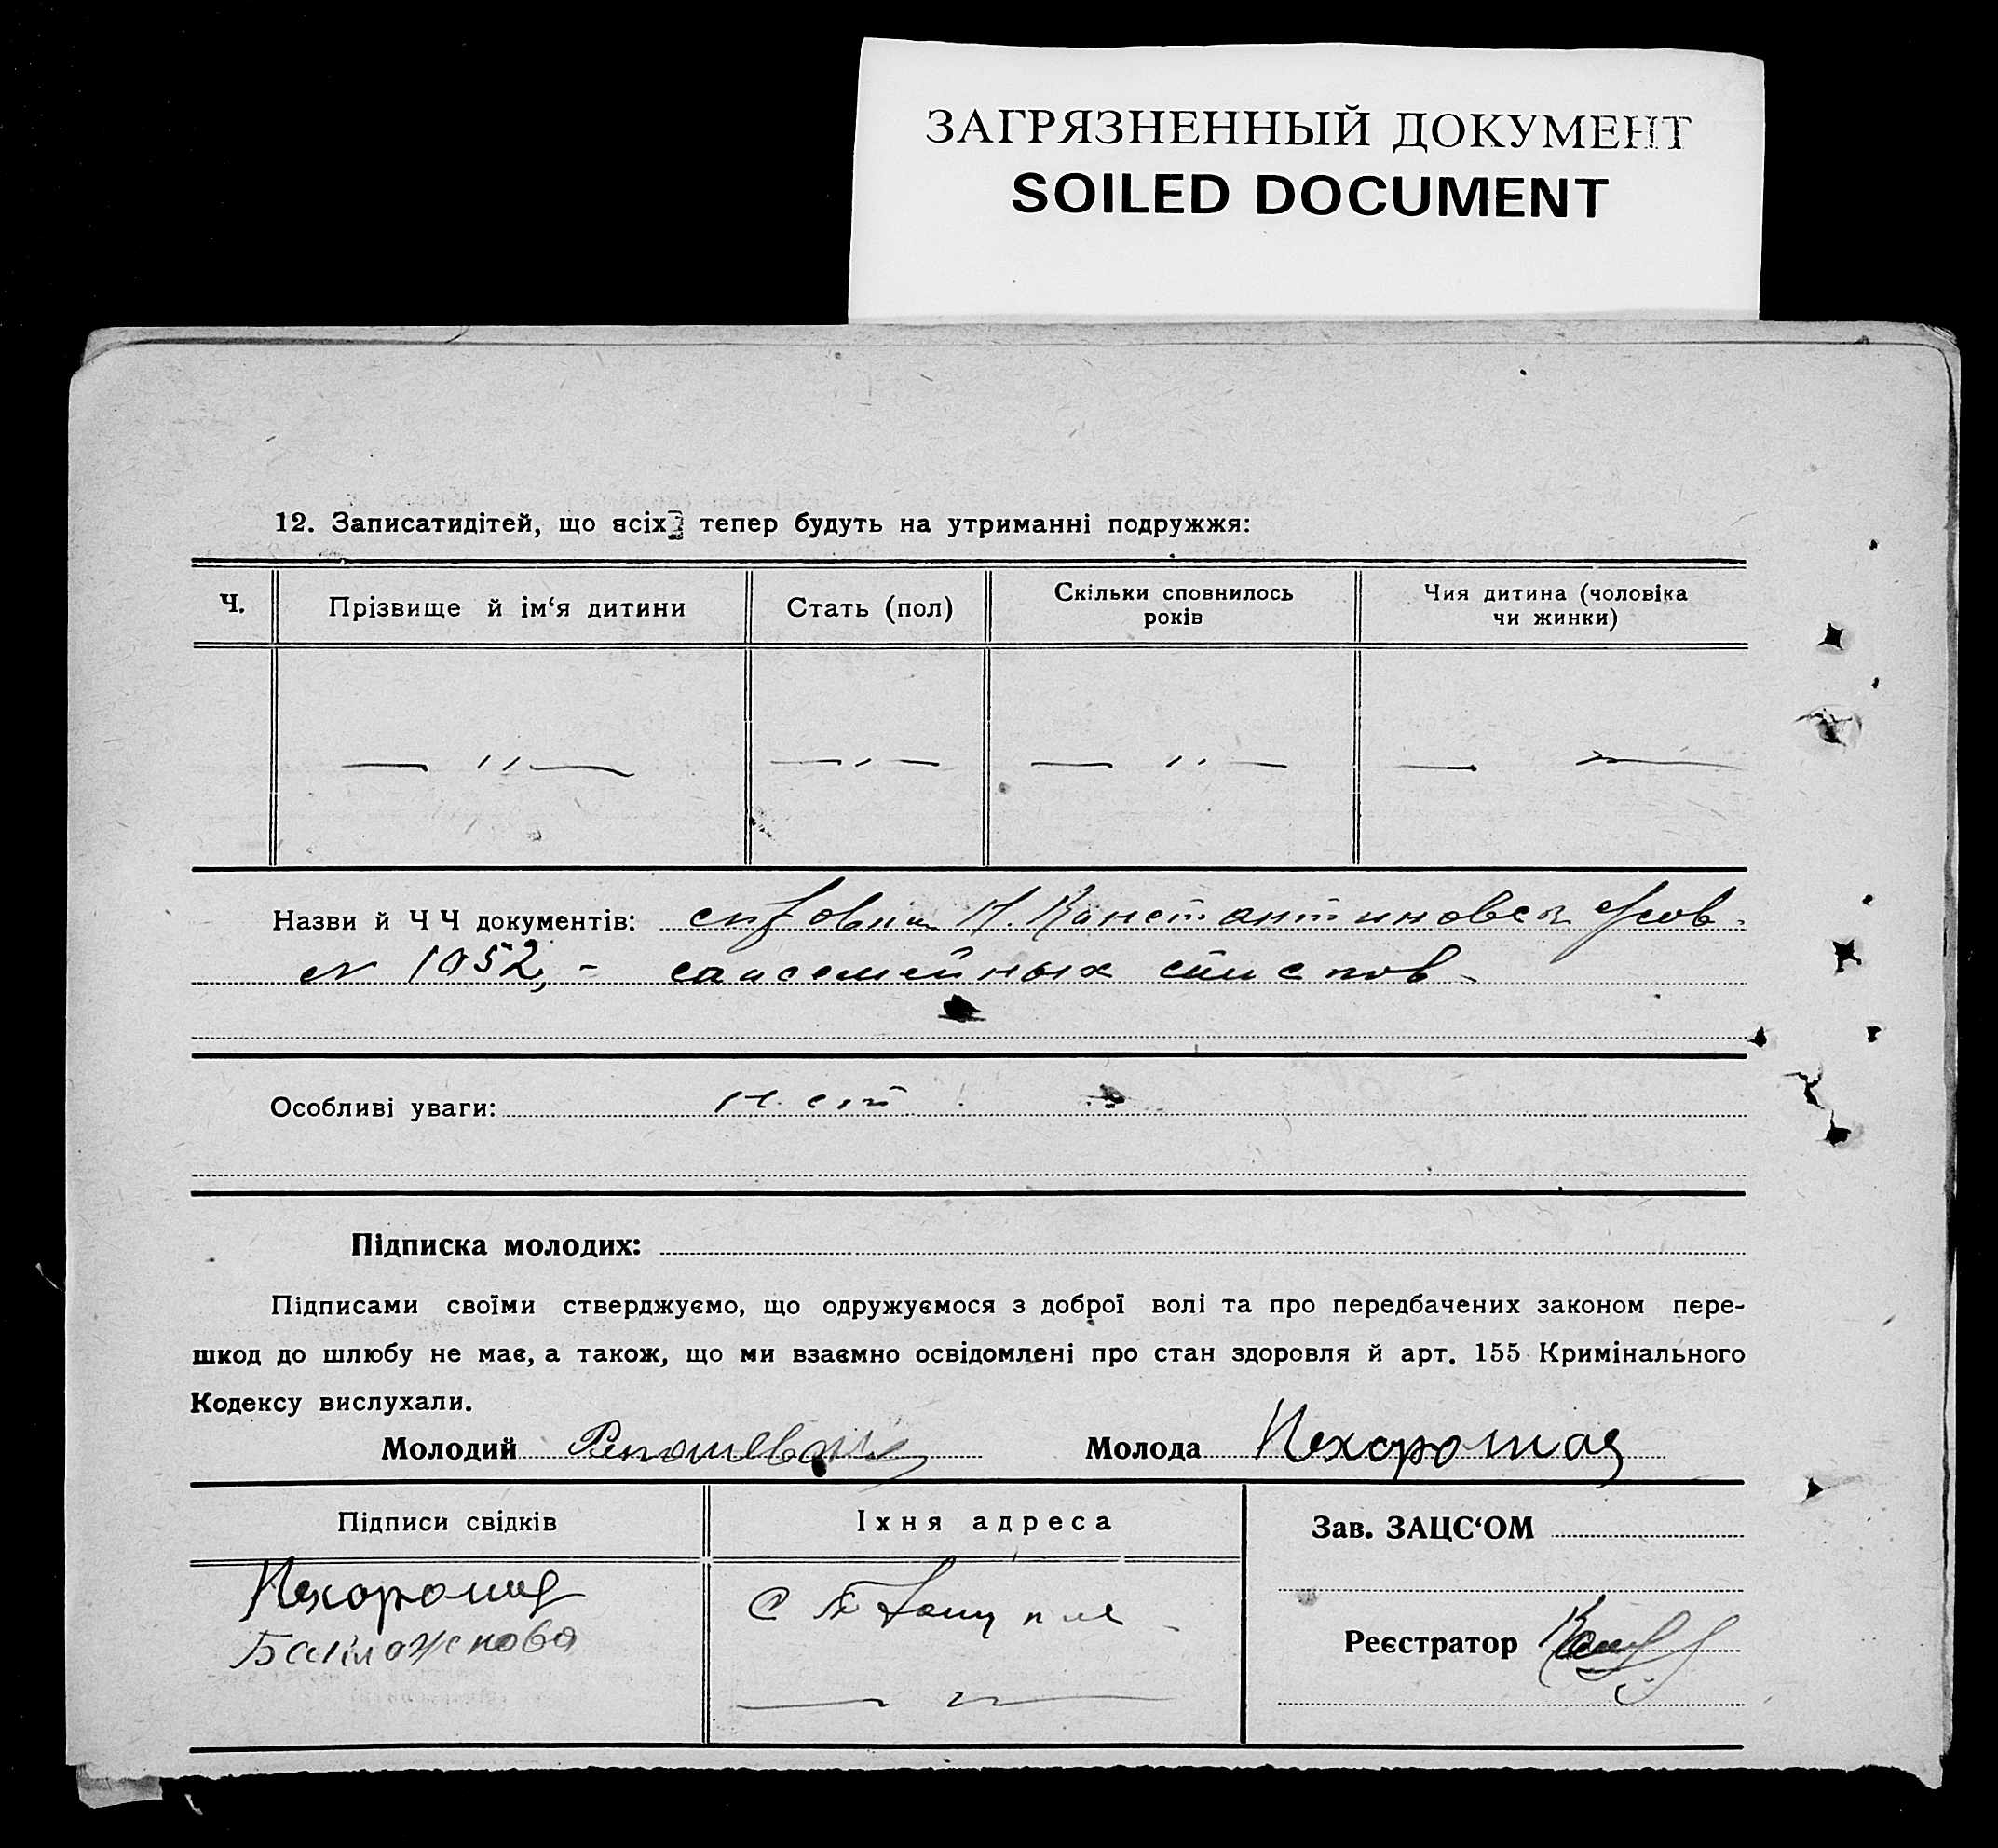 ЗАГРЯЗНЕННЫЙ ДОКУМЕНТ
SOILED DOCUMENT
12. Записатидітей, що всіх тепер будуть на утриманні подружжя:
Ч. Прізвище й ім‘я дитини Стать (пол) Скільки сповнилось років Чия дитина (чоловіка чи жинки)
— " — — " — — " — — " —
Назви й Ч Ч документів: Н. Константиновск
№ 1052, - списков
Особливі уваги: нет
Підписка молодих:
Підписами своїми стверджуємо, що одружуємося з доброї волі та про передбачених законом пере-
шкод до шлюбу не має, а також, що ми взаємно освідомлені про стан здоровля й арт. 155 Кримінального
Кодексу вислухали.
Молодий Молода Нехорошая
Підписи свідків Їхня адреса Зав. ЗАЦС‘ОМ
Нехорошая
Реєстратор
— " —